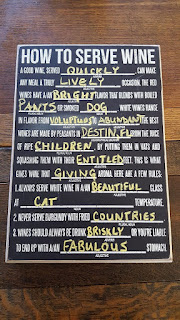 HOW TO SERVE WINE
A GOOD WINE, SERVED QUICKLY CAN MAKE
ANY MEAL A TRULY LIVELY OCCASION. THE RED
WINES HAVE A/AN BRIGHT FLAVOR THAT BLENDS WITH BOILED
PANTS OR SMOKED DOG. WHITE WINES RANGE
IN FLAVOR FROM VOLUPTUOUS TO ABUNDANT. THE BEST
WINES ARE MADE BY PEASANTS IN DESTIN, FL FROM THE JUICE
OF RIPE CHILDREN BY PUTTING THEM IN VATS AND
SQUASHING THEM WITH THEIR ENTITLED FEET. THIS IS WHAT
GIVES WINE THAT GIVING AROMA. HERE ARE A FEW RULES:
1. ALWAYS SERVE WHITE WINE IN A/AN BEAUTIFUL GLASS
ADJECTIVE
AT CAT TEMPERATURE.
NOUN
2. NEVER SERVE BURGUNDY WITH FRIED COUNTRIES
PLURAL NOUN
3. WINES SHOULD ALWAYS BE DRUNK BRISKLY OR YOU'RE LIABLE
ADVERB
TO END UP WITH A/AN FABULOUS STOMACH.
ADJECTIVE